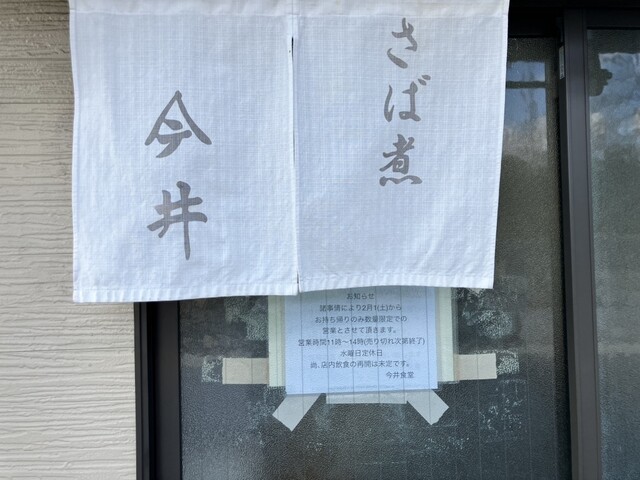 さば煮
今井
お知らせ
諸事情により2月1(土)から
お持ち帰りのみ数量限定での
営業とさせて頂きます。
営業時間11時〜14時(売り切れ次第終了)
水曜日定休日
尚、店内飲食の再開は未定です。
今井食堂